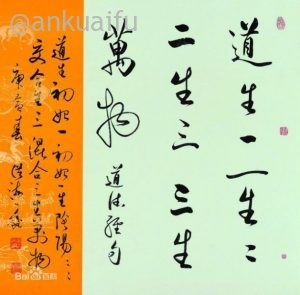 @ankuaifu
道生一一生二
二生三三生
萬物 道德經句
道生初始一初始一生陰陽二二
交合生三混合三生萬物
庚寅春
Bai 百科